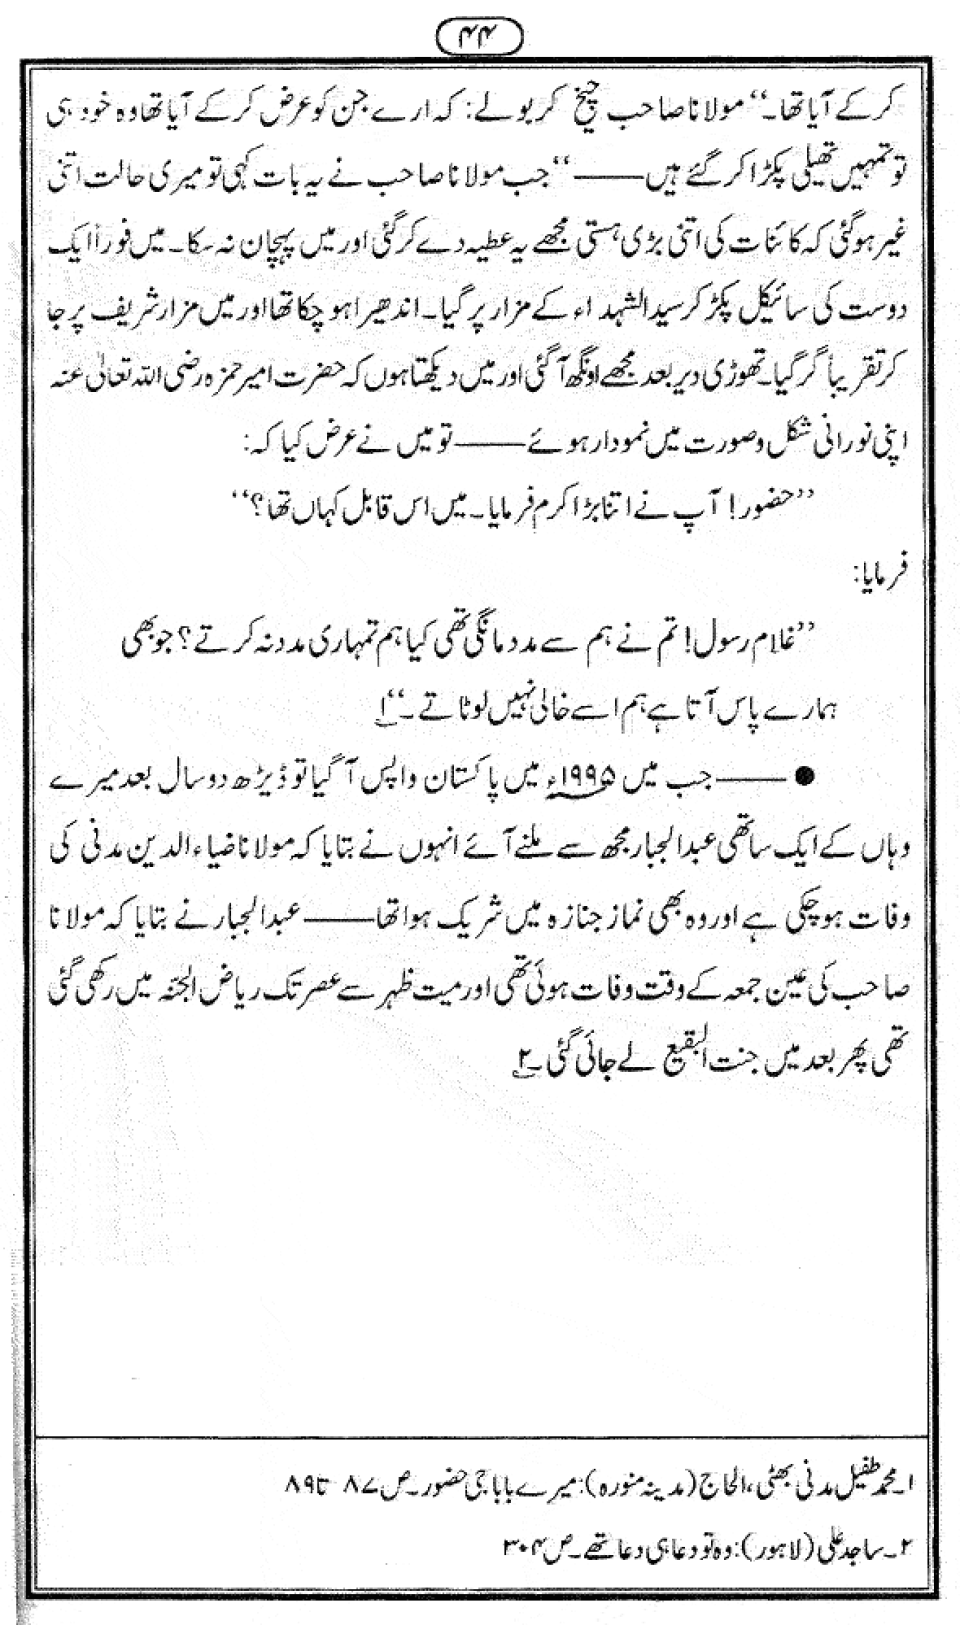 ۴۴
کر کے آیا تھا۔“ مولانا صاحب چیخ کر بولے: کہ ارے جن کو عرض کر کے آیا تھا وہ خود ہی
تو تمہیں تھیلی پکڑا کر گئے ہیں——“ جب مولانا صاحب نے یہ بات کہی تو میری حالت اتنی
غیر ہو گئی کہ کائنات کی اتنی بڑی ہستی مجھے یہ عطیہ دے کر گئی اور میں پہچان نہ سکا۔ میں فوراً ایک
دوست کی سائیکل پکڑ کر سید الشہداء کے مزار پر گیا۔ اندھیرا ہو چکا تھا اور میں مزار شریف پر جا
کر تقریباً گر گیا۔ تھوڑی دیر بعد مجھے اونگھ آ گئی اور میں دیکھتا ہوں کہ حضرت امیر حمزہ رضی اللہ تعالیٰ عنہ
اپنی نورانی شکل و صورت میں نمودار ہوئے——تو میں نے عرض کیا کہ:
”حضور! آپ نے اتنا بڑا کرم فرمایا۔ میں اس قابل کہاں تھا؟“
فرمایا:
”غلام رسول! تم نے ہم سے مدد مانگی تھی کیا ہم تمہاری مدد نہ کرتے؟ جو بھی
ہمارے پاس آتا ہے ہم اسے خالی نہیں لوٹاتے۔“۱
●——جب میں ۱۹۹۵ء میں پاکستان واپس آ گیا تو ڈیڑھ دو سال بعد میرے
وہاں کے ایک ساتھی عبدالجبار مجھ سے ملنے آئے انہوں نے بتایا کہ مولانا ضیاء الدین مدنی کی
وفات ہو چکی ہے اور وہ بھی نماز جنازہ میں شریک ہوا تھا——عبدالجبار نے بتایا کہ مولانا
صاحب کی عین جمعہ کے وقت وفات ہوئی تھی اور میت ظہر سے عصر تک ریاض الجنہ میں رکھی گئی
تھی پھر بعد میں جنت البقیع لے جائی گئی۔۲
۱۔ محمد طفیل مدنی بھٹی، الحاج (مدینہ منورہ): میرے بابا جی حضور۔ ص ۸۷ تا ۸۹
۲۔ ساجد علی (لاہور): وہ تو دعا ہی دعا تھے۔ ص ۳۰۴